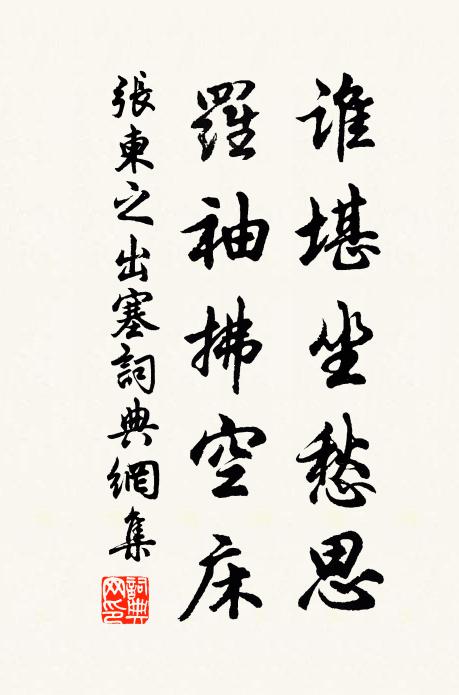 誰堪坐愁思
羅袖拂空床
張東之出塞詞典網集
詞典網印